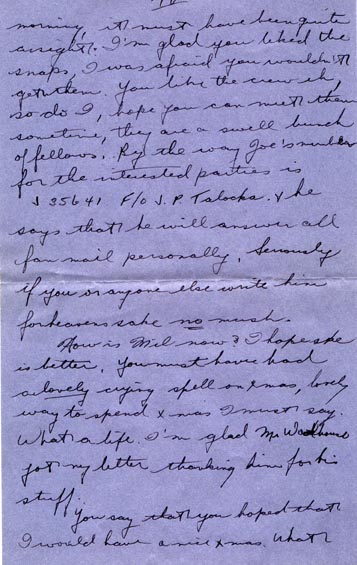 morning, it must have been quite
a sight. I'm glad you liked the
snaps, I was afraid you wouldn't
get them. You like the crew eh,
so do I, hope you can meet them
sometime, they are a swell bunch
of fellows. By the way Joe's number
for the interested parties is
J 35641 F/O J. P. Talocka. & he
says that he will answer all
fan mail personally. Seriously
if you or anyone else write him
for heavens sake no mush.
How is Mil now? I hope she
is better. You must have had
a lovely crying spell on xmas, lovely
way to spend xmas I must say.
What a life. I'm glad Mr
got my letter thanking him for his
stuff.
You say that you hoped that
I would have a nice xmas. What